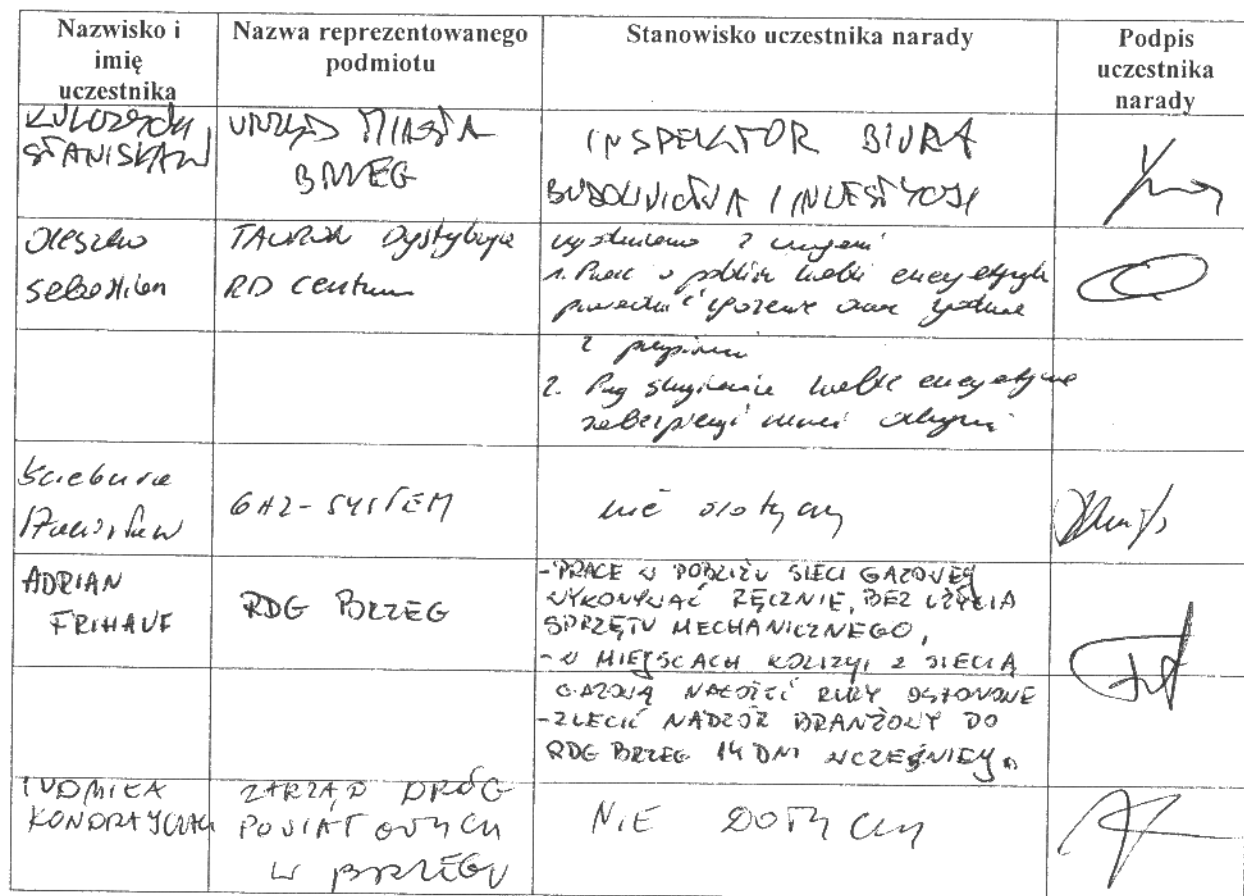 Nazwisko i
imię
uczestnika
Nazwa reprezentowanego
podmiotu
Stanowisko uczestnika narady
Podpis
uczestnika
narady
STANISŁAW
URZĄD MIASTA
BRZEG
INSPEKTOR BIURA
BUDOWNICTWA I INWESTYCJI
Oleszko
Sebastian
TAURON Dystrybucja
RD Centrum
uzgodniono z uwagami
1. Prace w pobliżu kabli energetycznych
prowadzić ręcznie oraz zgodnie
z przepisami
2. Przy skrzyżowaniu kable energetyczne
zabezpieczyć rurami
Stanisław
GAZ-SYSTEM
nie dotyczy
ADRIAN
FRIHAUF
RDG BRZEG
-PRACE W POBLIŻU SIECI GAZOWEJ
WYKONYWAĆ RĘCZNIE, BEZ UŻYCIA
SPRZĘTU MECHANICZNEGO,
-W MIEJSCACH KOLIZYI Z SIECIĄ
GAZOWĄ NAŁOŻYĆ RURY OSŁONOWE
-ZLECIĆ NADZÓR BRANŻOWY DO
RDG BRZEG 14 DNI WCZEŚNIEJ.
LUDMIŁA
ZARZĄD DRÓG
POWIATOWYCH
W BRZEGU
NIE DOTYCZY